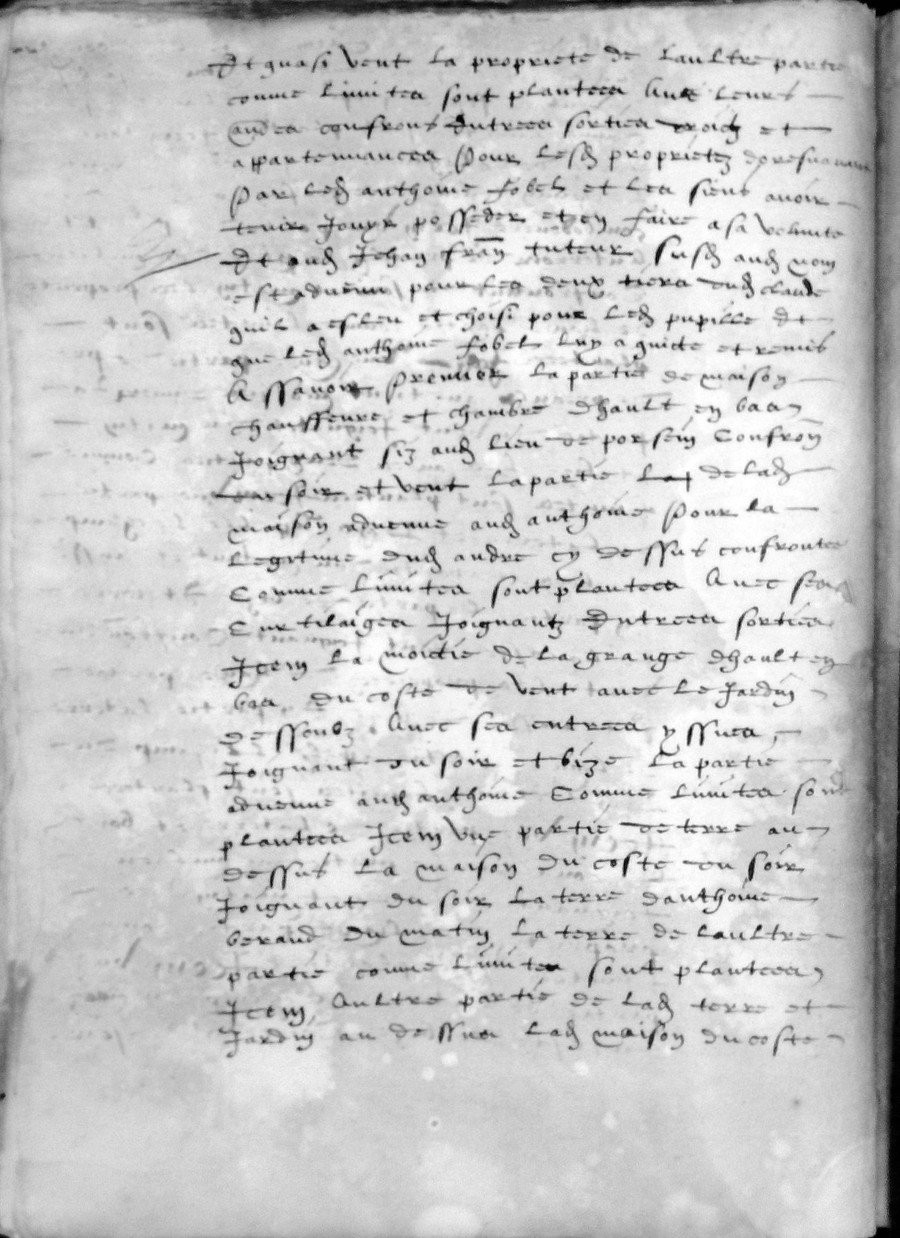 Et quasi vent la propriete de laultre partie
comme limites sont plantees Avec leurs
aultres confrons Entrees sorties droictz et
appartenances Pour lesd proprietez doresnavant
Par led anthoine fobel et les siens avoir
tenir Jouyr posseder et en faire a sa volunte
Et aud Jehan fran tuteur susd aud nom
est advenu pour les deux tiers dud claude
quil a esleu et choisi pour led pupille Et
que led anthoine fobel luy a quicte et remis
Assavoir Premier la partie de maison
chauffeure et chambre dhault en bas
Joignant siz aud lieu de porsein Confron
du soir et vent la partie de lad
maison advenue aud anthoine Pour la
legitime dud andre cy dessus confrontee
Comme limites sont plantees Avec ses
Curtilaiges Joignantz Entrees sorties
Item la moictie de la grange dhault en
bas du coste de vent avec le Jardin
dessoubz Avec ses entrees yssues
Joignant du soir et bize la partie
advenue aud anthoine Comme limites sont
plantees Item une partie de terre au
dessus la maison du coste du soir
Joignant du soir la terre danthoine
beraud du matin la terre de laultre
partie comme limites sont plantees
Item Aultre partie de lad terre et
Jardin au dessus lad maison du coste